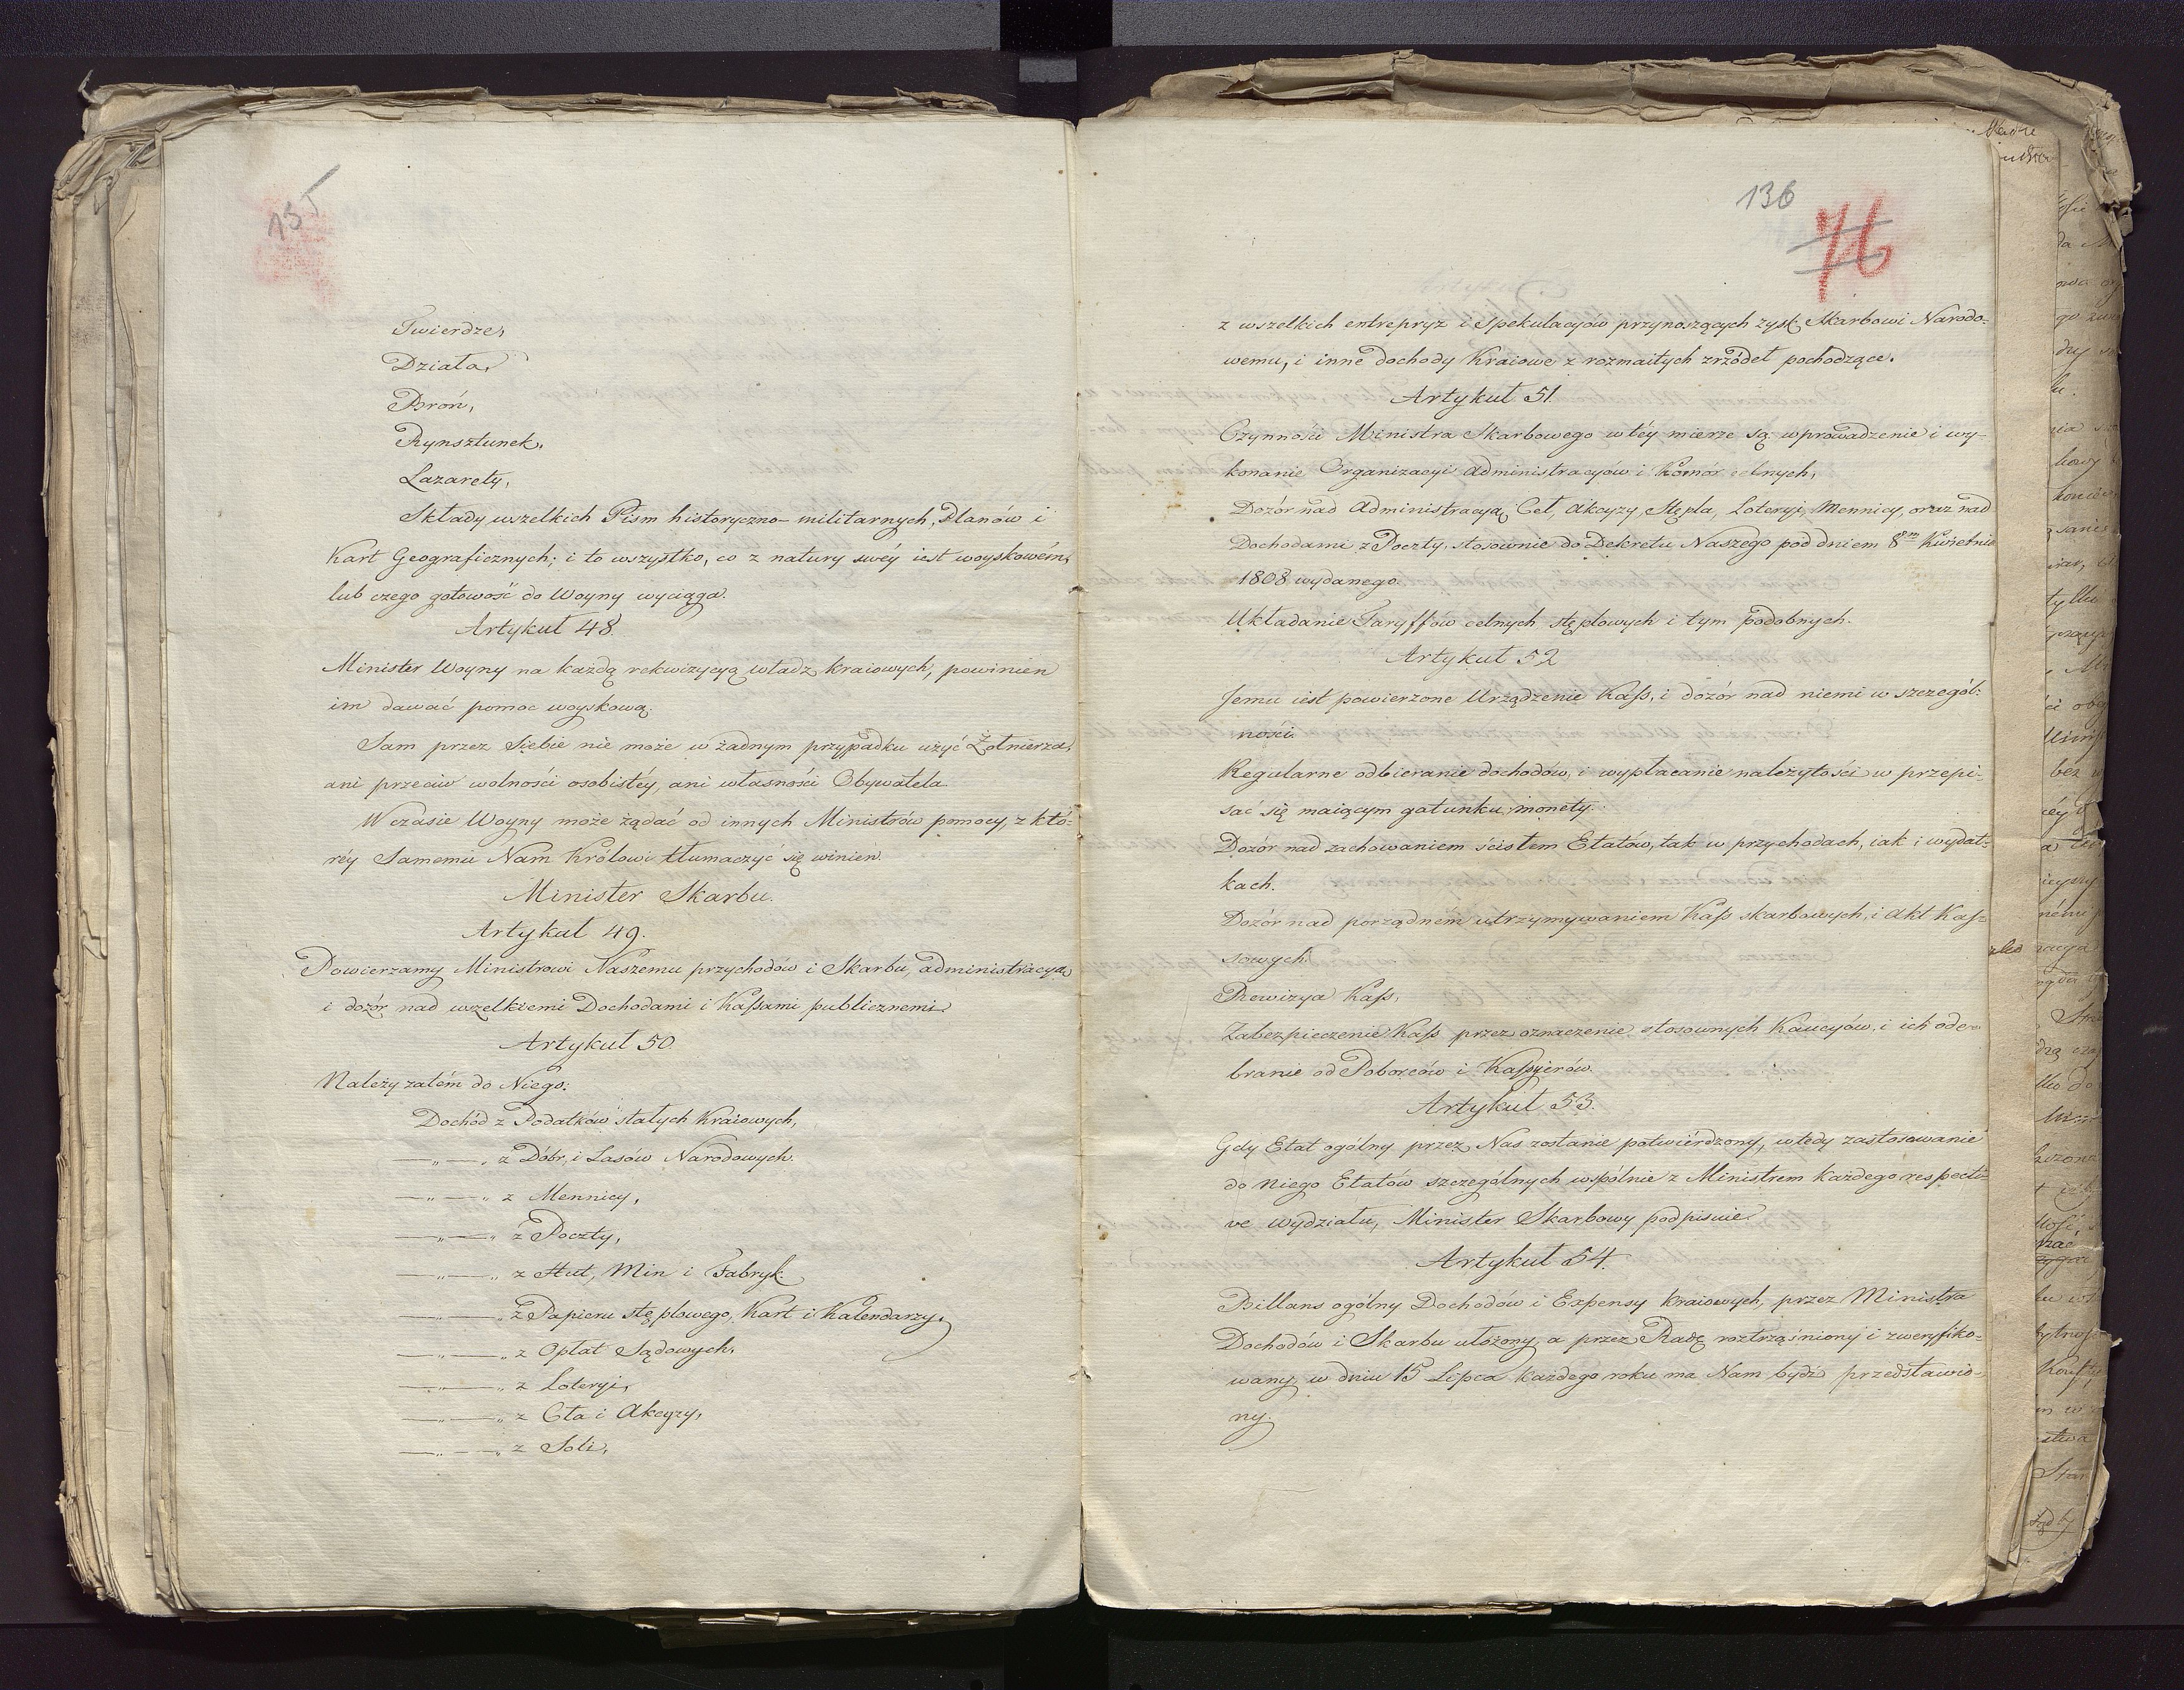 135
Twierdze,
Działa,
Broń,
Rynsztunek,
Lazarety,
Składy wszelkich Pism historyczno-militarnych, Planów i
Kart Geograficznych; i to wszystko, co z natury swéy iest woyskowém,
lub czego gotowość do Woyny wyciąga.
Artykuł 48.
Minister Woyny na każdą rekwizycyą władz kraiowych, powinien
im dawać pomoc woyskową.
Sam przez Siebie nie może w żadnym przypadku użyć Żołnierza,
ani przeciw wolności osobistéy, ani własności Obywatela.
W czasie Woyny może żądać od innych Ministrów pomocy, z któ-
réy Samemu Nam Królowi tłumaczyć się winien.
Minister Skarbu.
Artykuł 49.
Powierzamy Ministrowi Naszemu przychodów i Skarbu, administracyą
i dozór nad wszelkiemi Dochodami i Kaſsami publicznemi.
Artykuł 50.
Należy zatém do Niego:
Dochód z Podatków stałych Kraiowych,
—„—„ z Dóbr, i Lasów Narodowych.
—„—„ z Mennicy,
—„—„ z Poczty,
—„—„ z Hut, Min i Fabryk.
—„—„ z Papieru stęplowego, Kart i Kalendarzy.
—„—„ z Opłat Sądowych.
—„—„ z Loteryi,
—„—„ z Cła i Akcyzy,
—„—„ z Soli,
136
76
z wszelkich entrepryz i spekulacyów przynoszących zysk Skarbowi Narodo-
wemu, i inne dochody Kraiowe z rozmaitych zrzódeł pochodzące.
Artykuł 51.
Czynności Ministra Skarbowego w téy mierze są: wprowadzenie i wy-
konanie Organizacyi administracyów i Komór celnych,
Dozór nad Administracyą Ceł, Akcyzy, Stępla, Loteryi, Mennicy, oraz nad
Dochodami z Poczty, stosownie do Dekretu Naszego pod dniem 8m Kwietnia
1808 wydanego.
Układanie Taryffów celnych stęplowych i tym podobnych.
Artykuł 52
Jemu iest powierzone Urządzenie Kaſs, i dozór nad niemi w szczegól-
ności.
Regularne odbieranie dochodów, i wypłacanie należytości w przepi-
sać się maiącym gatunku monety.
Dozór nad zachowaniem ścisłem Etatów, tak w przychodach, iak i wydat-
kach.
Dozór nad porządném utrzymywaniem Kaſs skarbowych, i Akt Kaſ-
sowych.
Rewizya Kaſs,
Zabezpieczenie Kaſs przez oznaczenie stosownych Kaucyów, i ich ode-
branie od Poborców i Kaſsyerów.
Artykuł 53.
Gdy Etat ogólny przez Nas zostanie potwiérdzony, wtedy zastosowanie
do niego Etatów szczególnych wspólnie z Ministrem każdego respecti-
ve wydziału, Minister Skarbowy podpisuie.
Artykuł 54.
Billans ogólny Dochodów i Expensy kraiowych, przez Ministra
Dochodów i Skarbu ułożony, a przez Radę roztrząśniony i zweryfiko-
wany, w dniu 15 Lipca każdego roku ma Nam bydź przedstawio-
ny.